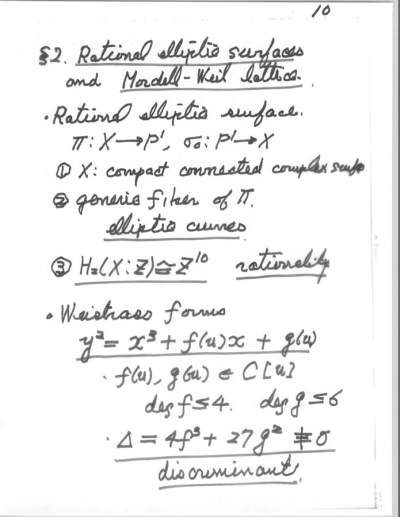 10
§2. Rational elliptic surfaces
and Mordell-Weil lattice.
• Rational elliptic surface.
π: X→P¹, σ₀: P¹→X
① X: compact connected complex surf
② generic fiber of π.
elliptic curves
③ H₂(X:Z)≅Z¹⁰ rationality
• Weistrass forms
y² = x³ + f(u)x + g(u)
· f(u), g(u) ∈ C[u]
deg f≤4. deg g≤6
· Δ = 4f³ + 27g² ≢ 0
discriminant.